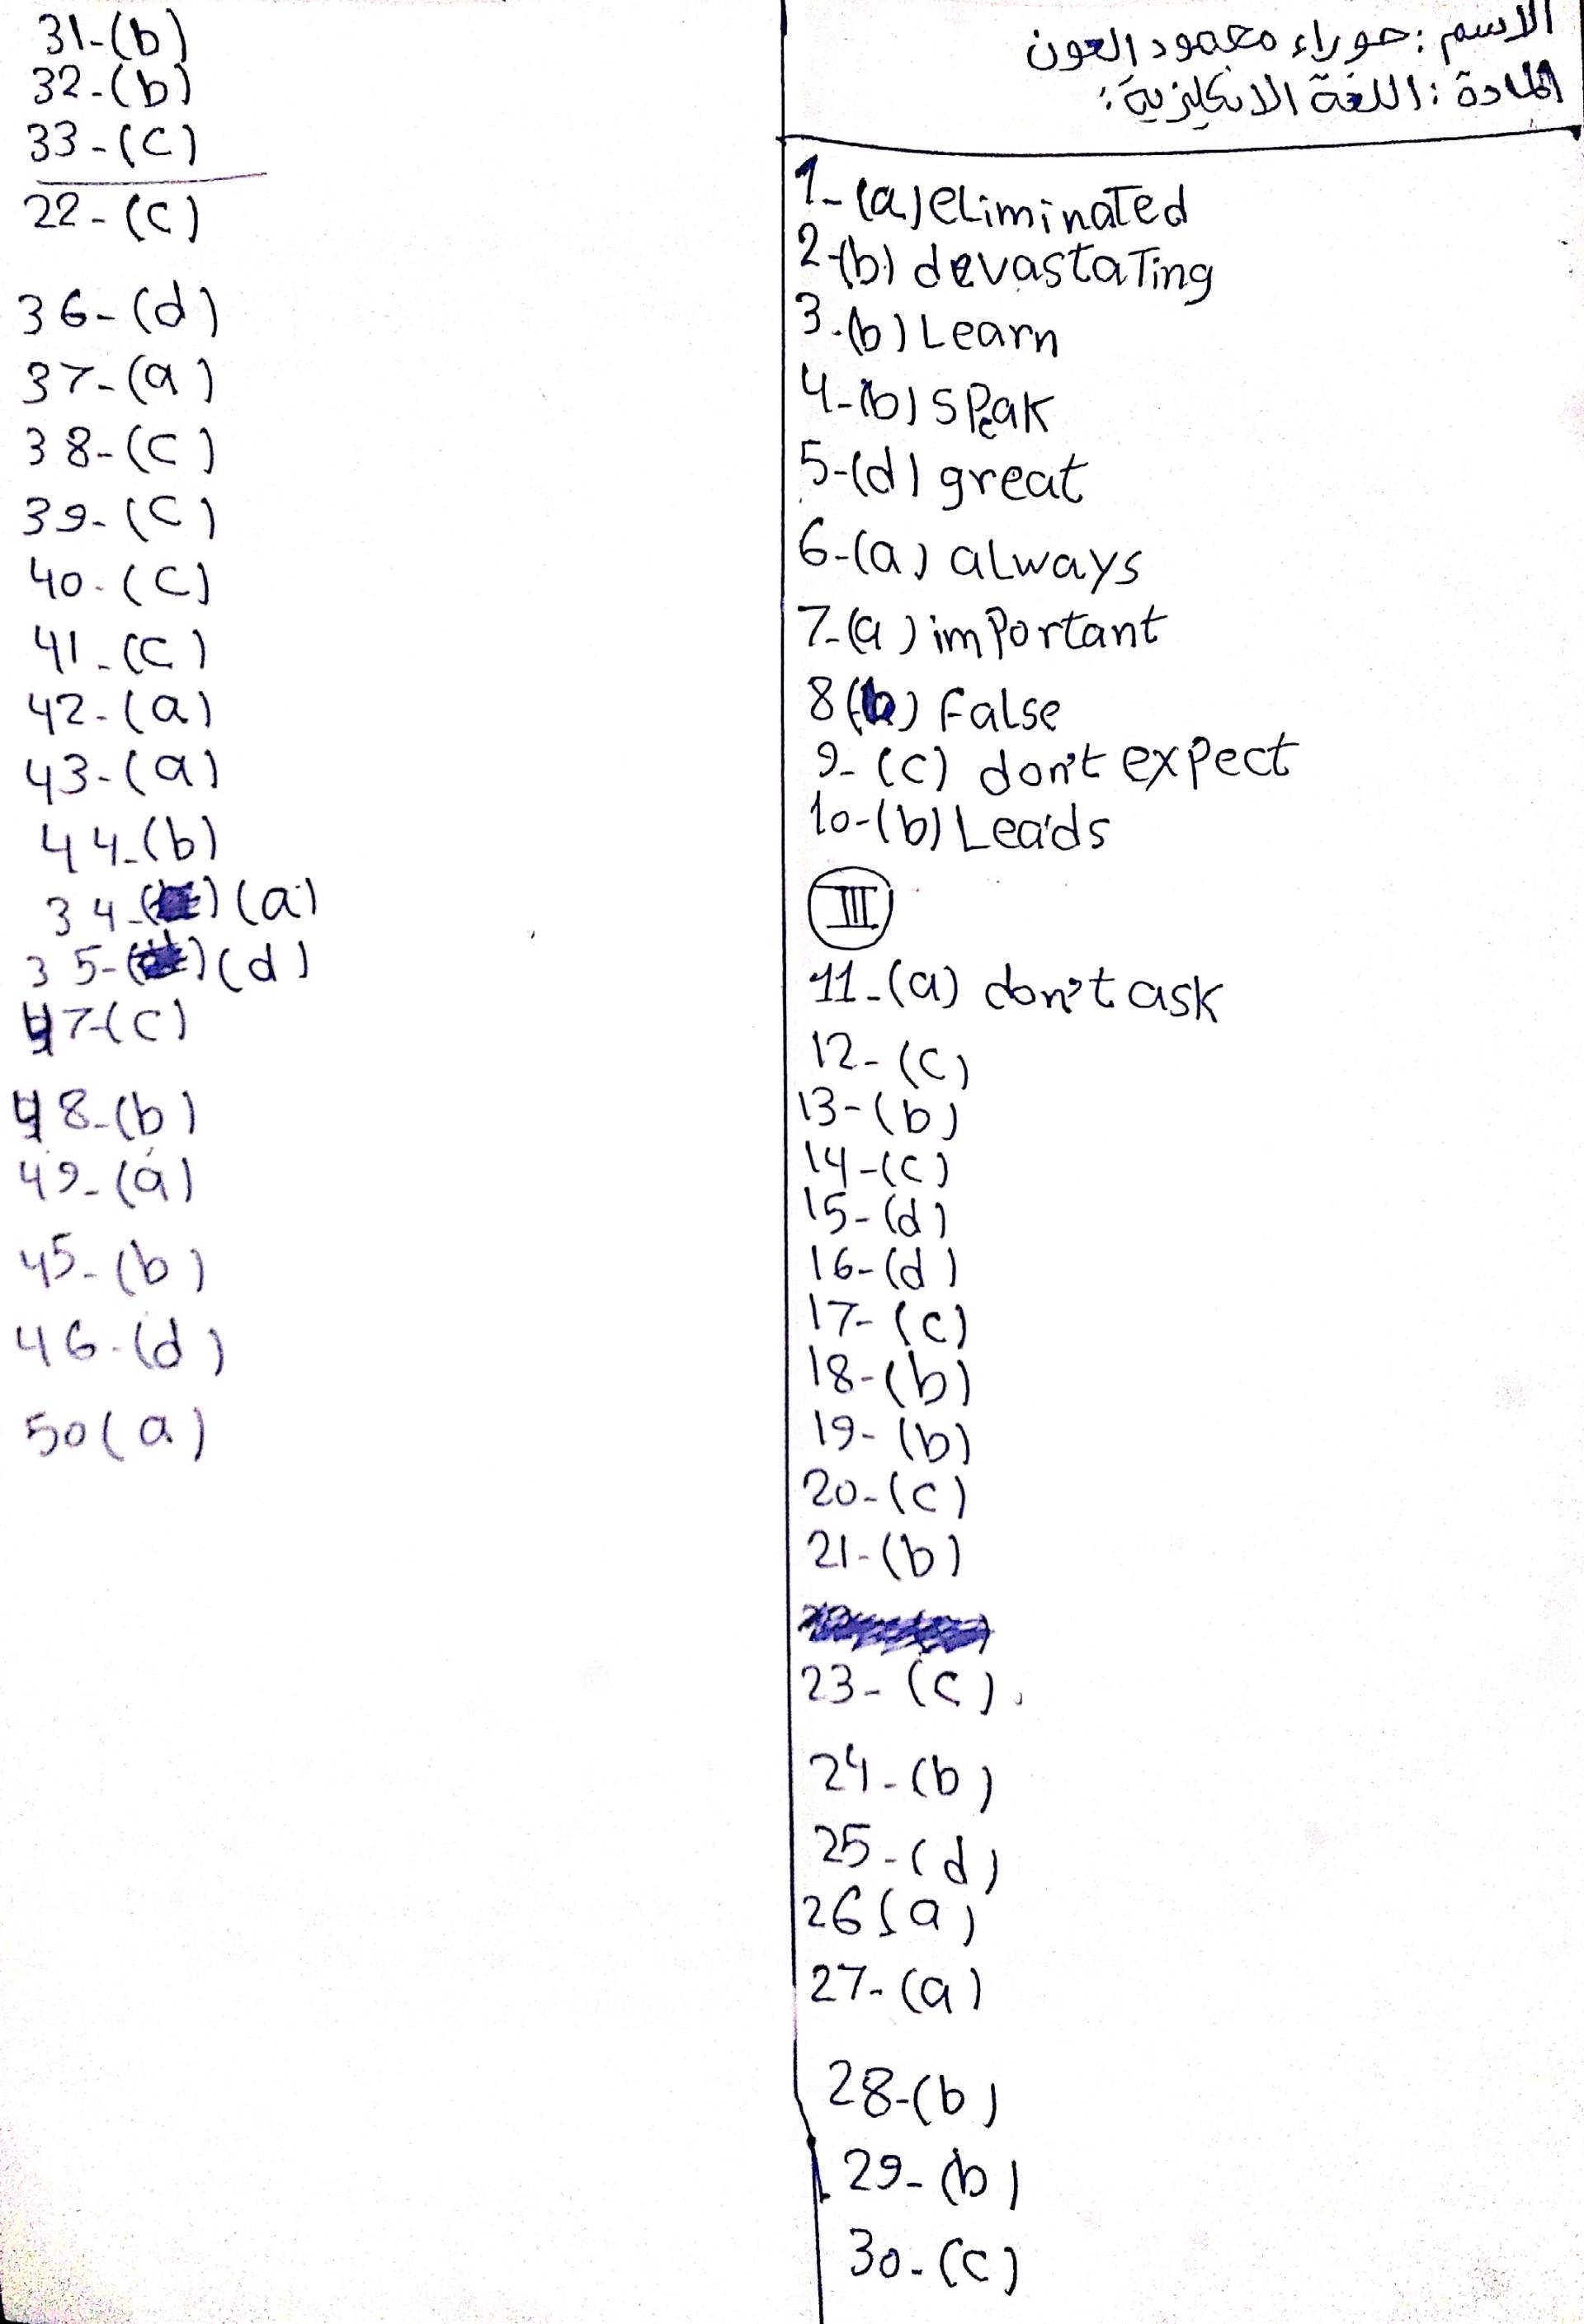 الاسم : حوراء محمود العون
المادة : اللغة الانكليزية :
1- (a) eliminated
2-(b) devastating
3-(b) Learn
4-(b) speak
5-(d) great
6-(a) always
7-(a) important
8(b) False
9- (c) don't expect
10-(b) Leads
III
11-(a) don't ask
12-(c)
13-(b)
14-(c)
15-(d)
16-(d)
17-(c)
18-(b)
19-(b)
20-(c)
21-(b)
23-(c)
24-(b)
25-(d)
26(a)
27-(a)
28-(b)
29-(b)
30-(c)
31-(b)
32-(b)
33-(c)
22-(c)
36-(d)
37-(a)
38-(c)
39-(c)
40-(c)
41-(c)
42-(a)
43-(a)
44-(b)
34-( ) (a)
35-( ) (d)
47-(c)
48-(b)
49-(a)
45-(b)
46-(d)
50(a)